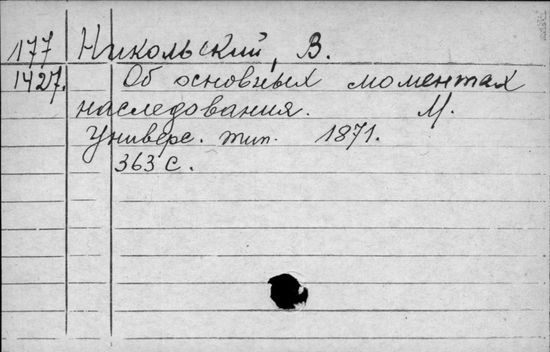 177 Никольский, В.
1427. Об основных моментах
наследования. М.
Универс. тип. 1871.
363 с.